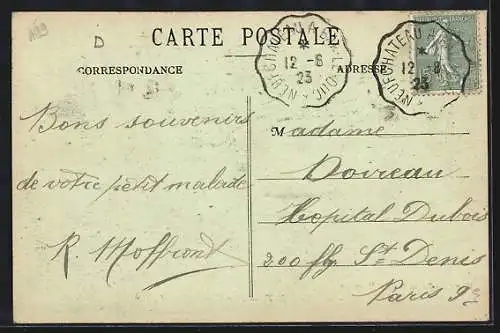 A29
D
CARTE POSTALE
CORRESPONDANCE
ADRESSE
NEUFCHATEAU A BAR-LE-DUC
12 - 8
23
NEUFCHATEAU A
12 - 8
23
Bons souvenirs
de votre petit malade
R. Moffront
Madame
Doireau
Hopital Dubois
200 fbg St Denis
Paris